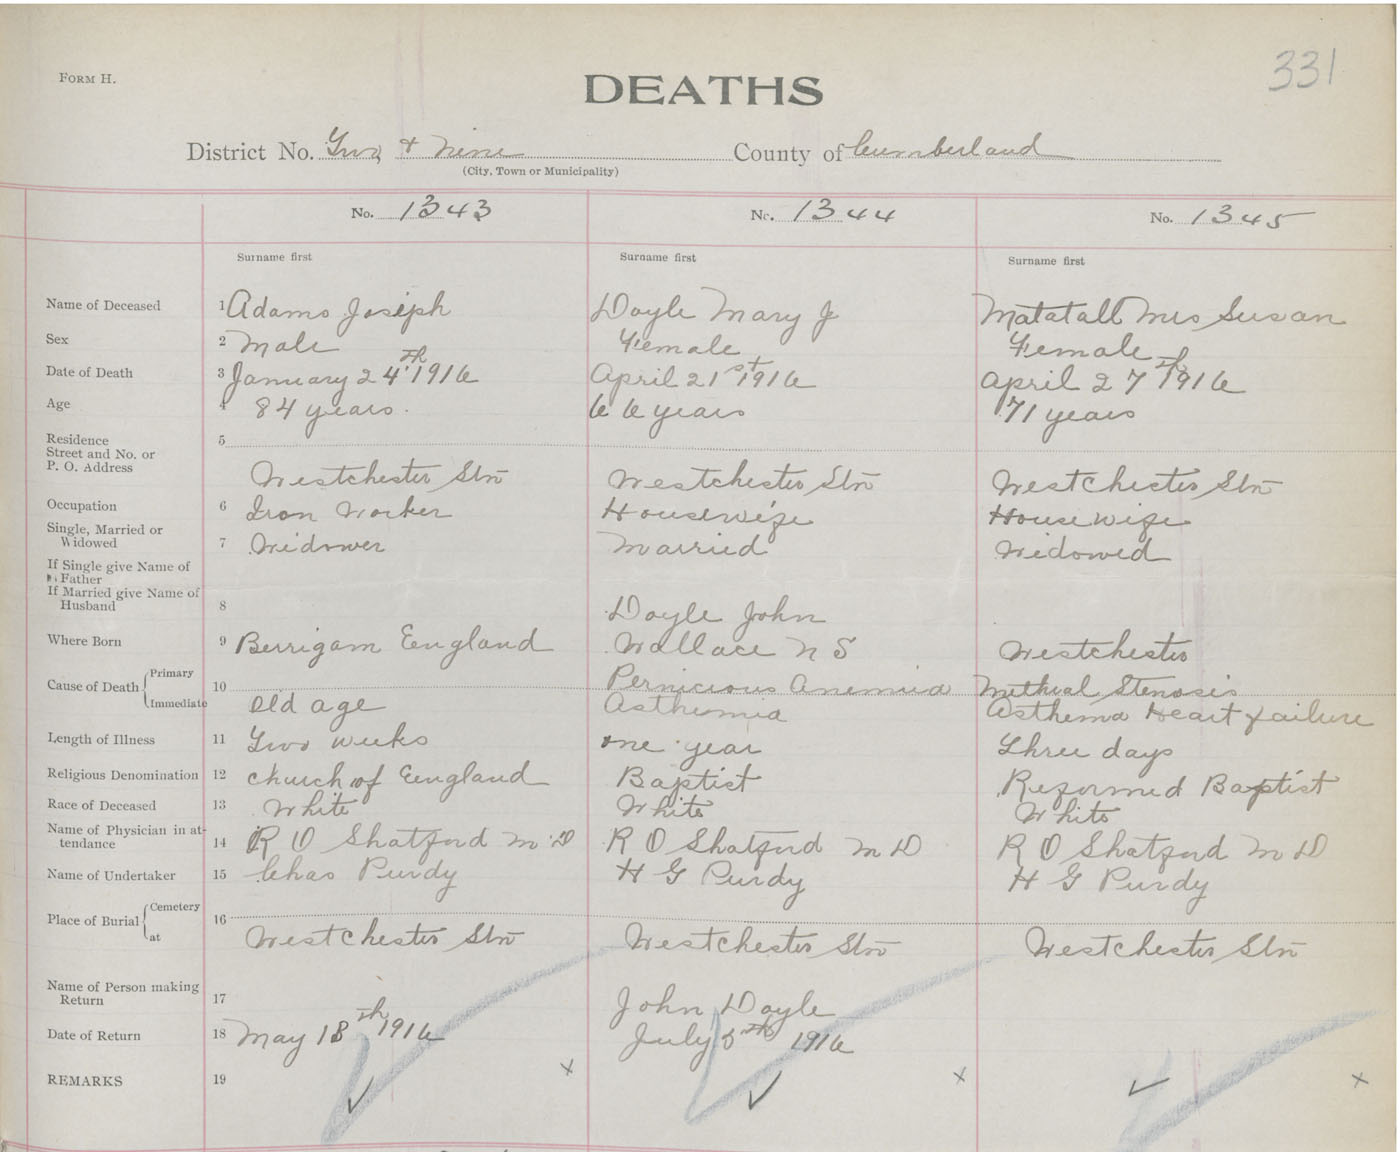 FORM H.
331
DEATHS
District No. Two & Nine County of Cumberland
(City, Town or Municipality)
No. 1343 No. 1344 No. 1345
Surname first Surname first Surname first
Name of Deceased 1 Adams Joseph Doyle Mary J Matatall Mrs Susan
Sex 2 Male Female Female
Date of Death 3 January 24th 1916 April 21st 1916 April 27th 1916
Age 4 84 years. 66 years 71 years
Residence 5
Street and No. or
P. O. Address Westchester Stn Westchester Stn Westchester Stn
Occupation 6 Iron Worker Housewife Housewife
Single, Married or
Widowed 7 Widower Married Widowed
If Single give Name of
Father
If Married give Name of
Husband 8 Doyle John
Where Born 9 Berrigam England Wallace N S Westchester
Cause of Death Primary 10 Pernicious Anemia Methral Stenosis
Immediate Old age Asthemia Asthema Heart failure
Length of Illness 11 Two weeks one year Three days
Religious Denomination 12 Church of England Baptist Reformed Baptist
Race of Deceased 13 White White White
Name of Physician in at-
tendance 14 R O Shatford M D R O Shatford M D R O Shatford M D
Name of Undertaker 15 Chas Purdy H G Purdy H G Purdy
Place of Burial Cemetery 16
at Westchester Stn Westchester Stn Westchester Stn
Name of Person making
Return 17 John Doyle
Date of Return 18 May 18th 1916 July 5th 1916
REMARKS 19 x x x